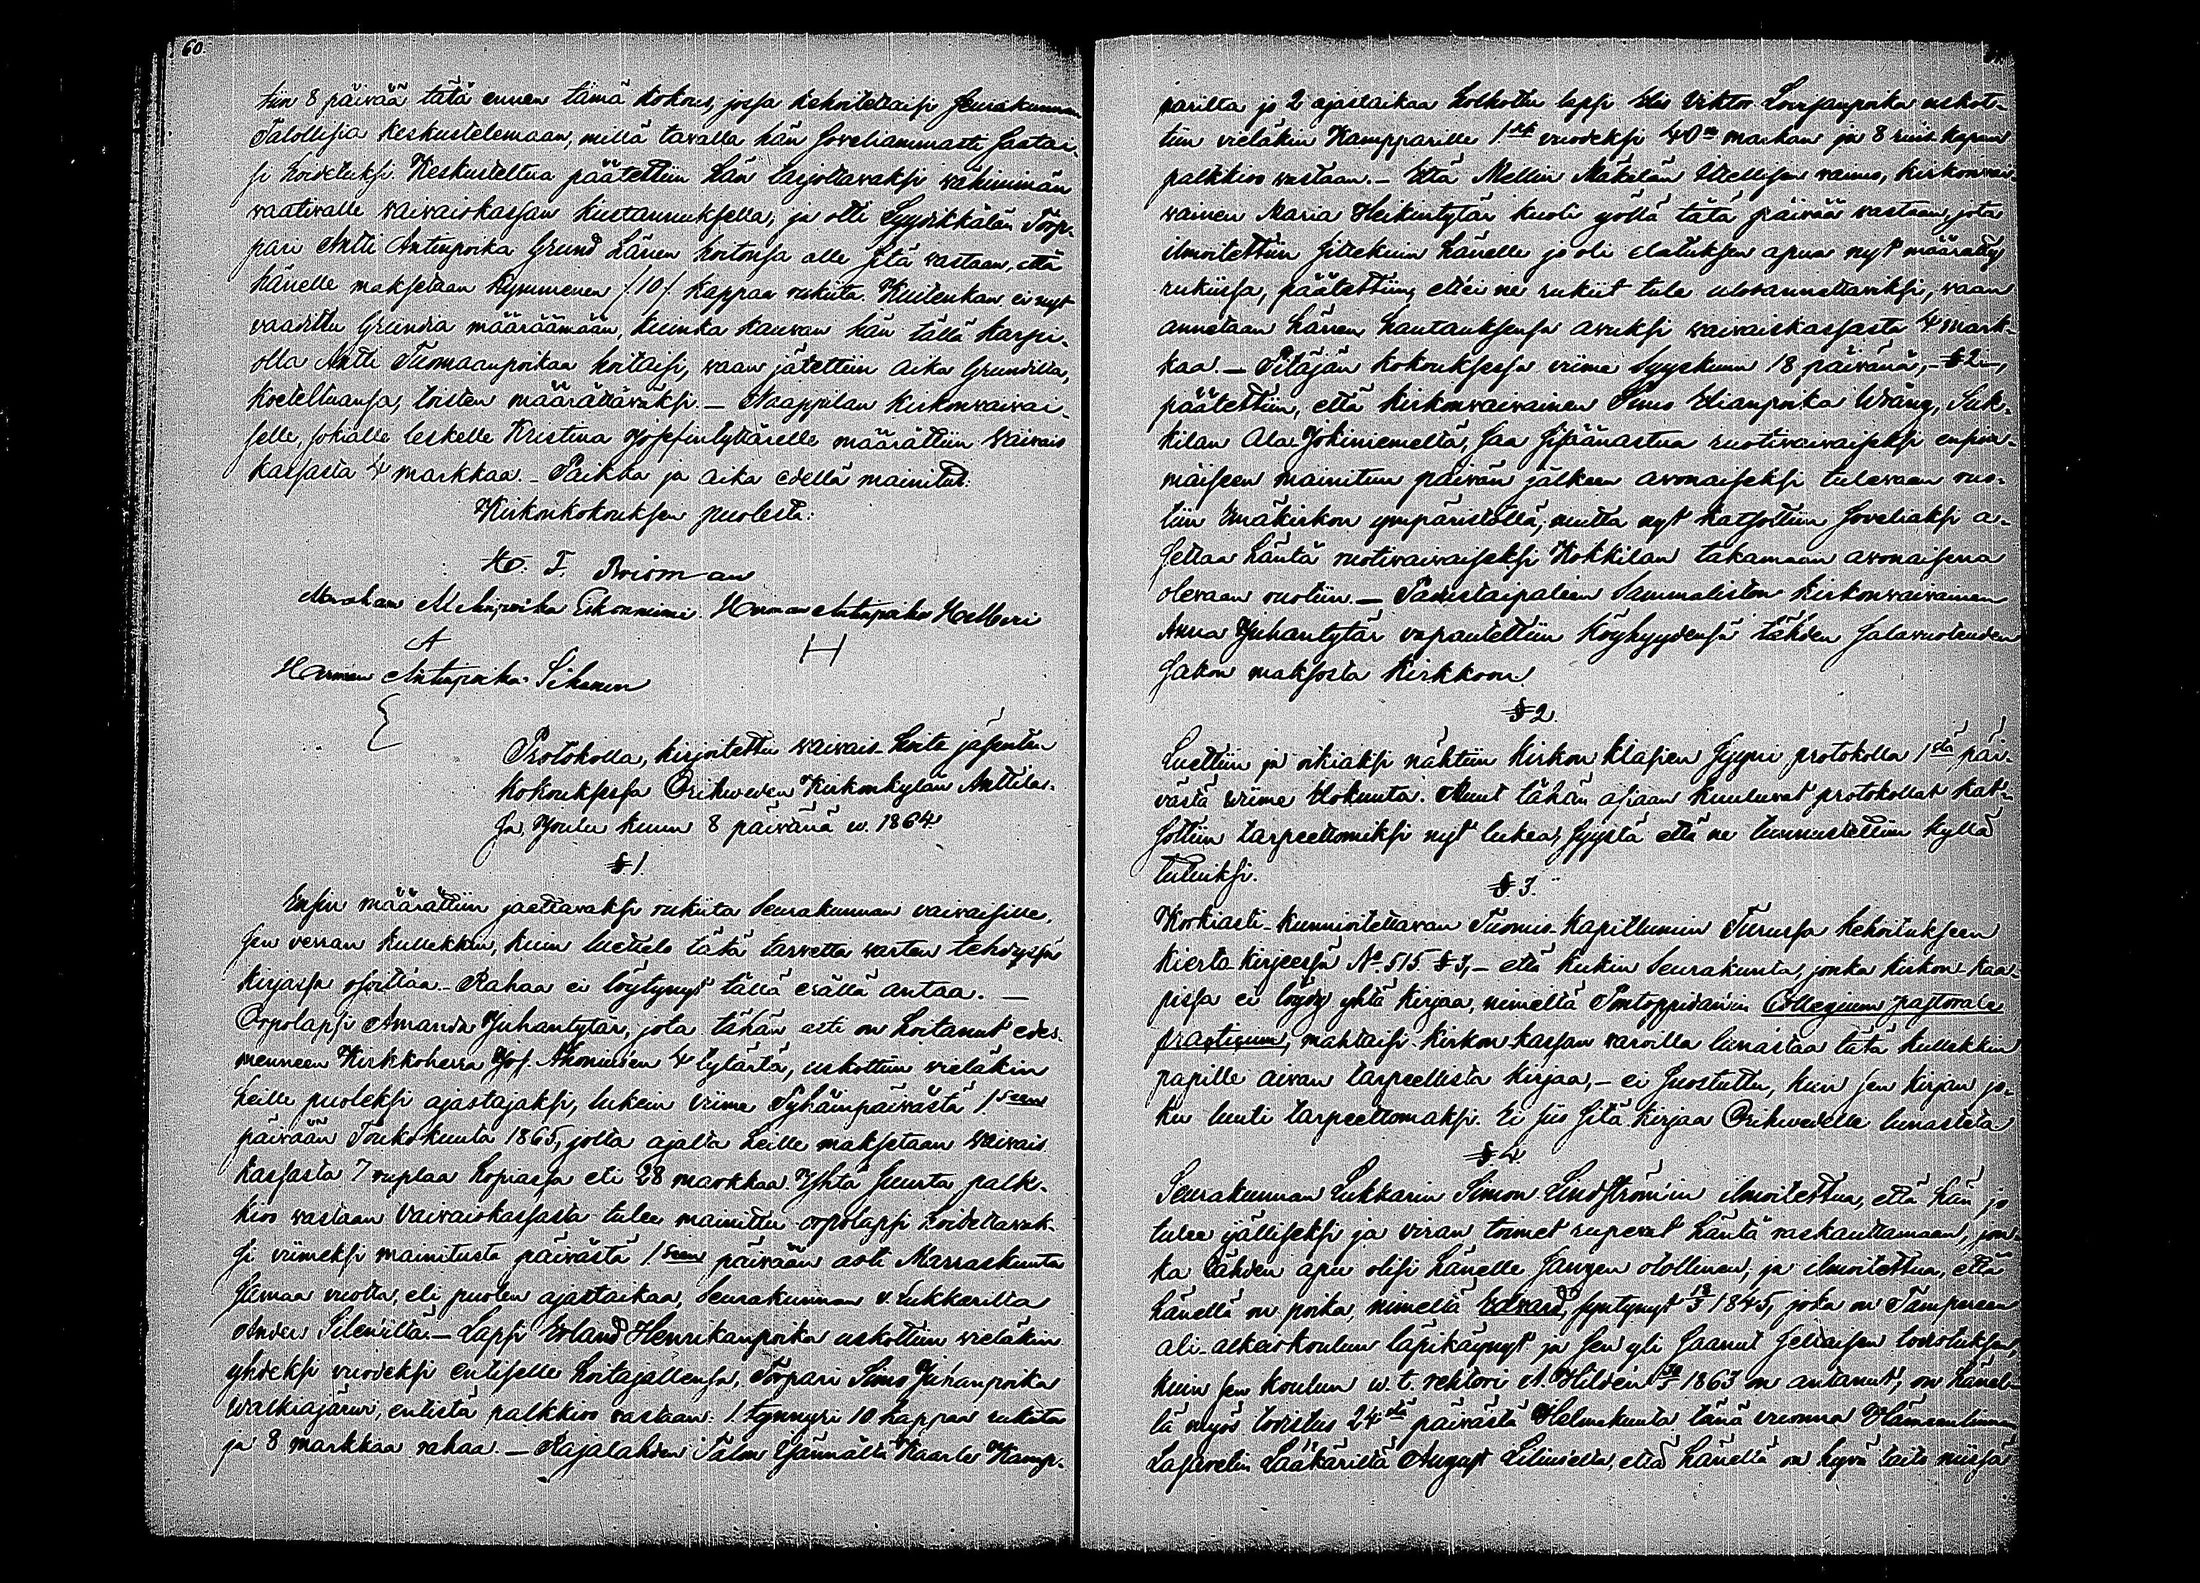 60.
tiin 8 päivää tätä ennen tämä kokous, jossa kehoitettaisi Seurakunnan
Talollisia keskustelemaan, millä tavalla hän soveliammasti saatai-
si hoidetuksi. Keskusteltua päätettiin hän tarjottavaksi vähimmän
vaativalle vaivaiskassan kustannuksella; ja otti Syvänkkälän Torp-
pari Antti Antinpoika Grund hänen hoitonsa alle sitä vastaan, että
hänelle maksetaan kymmenen /10/ kappaa rukiita. Kuitenkan ei nyt
vaadittu Grundia määräämään, kuinka kauvan hän tällä karpi-
olla Antti Tuomaanpoikaa hoitaisi, vaan jätettiin aika Grundilta,
koeteltuansa, toisten määrättäväksi. — Naappilan kirkonvaivai-
selle, sokialle leskelle Kristina Josefintyttärelle määrättiin vaivais
kassasta 4 markkaa. – Paikka ja aika edellä mainitut.
Kirkonkokouksen puolesta:
K. F. Broman
Abraham Matinpoika Eskonniemi Herman Antinpoika Hallberi
A H
Herman Antinpoika Sihonen
Protokolla, kirjoitettu vaivais-hoito jäsenten
kokouksessa Orihweden Kirkonkylän Anttilas-
sa, Joulu kuun 8 päivänä w. 1864.
§ 1.
Ensin määrättiin jaettavaksi rukiita Seurakunnan vaivaisille,
sen verran kullekkin, kuin luettelo tätä tarvetta varten tehdyssä
kirjassa osoittaa. – Rahaa ei löytynyt tällä erällä antaa. —
Orpolapsi Amanda Juhantytär, jota tähän asti on hoitanut edes-
menneen Kirkkoherra Jos. Ahoniusen 4 tytärtä, uskottiin vieläkin
heille puoleksi ajastajaksi, lukein viime Pyhämpäivästä 1. seen
päivään Toukokuuta 1865, jolta ajalta heille maksetaan vaivais
kassasta 7 ruplaa hopiassa eli 28 markkaa. Yhtä suurta palk-
kioo vastaan vaivaiskassasta tulee mainittu orpolapsi hoidettavak-
si viimeksi mainitusta päivästä 1. seen päivään asti Marraskuuta
samaa vuotta, eli puolen ajastaikaa, Seurakunnan v. Lukkarilta
Anders Silen'iltä. — Lapsi Erland Henrikanpoika uskottiin vieläkin
yhdeksi vuodeksi entiselle hoitajallensa, Torpari Simo Juhanpoika
Walkiajärvi, entistä palkkioo vastaan: 1. tynnyri 10 kappaa rukiita
ja 8 markkaa rahaa. — Rajalahden Talon Yännältä Kaarle Kamp-
parilta jo 2 ajastaikaa holhottu lapsi Elis Viktor Loviisanpoika uskot-
tiin vieläkin Kampparille 1. si vuodeksi 40 n markan ja 8 ruis-kapan
palkkioo vastaan. – Että Mellin Mäkelän Itsellisen vaimo, kirkonvai-
vainen Maria Heikintytär kuoli yöllä tätä päivää vastaan, jota
ilmoitettiin sittekuin hänelle jo oli elatuksen apua nyt määrätty
rukiissa, päätettiin, ettei ne rukiit tule ulosannettaviksi, vaan
annetaan hänen hautauksensa avuksi vaivaiskassasta 4 mark-
kaa. — Pitäjän kokouksessa viime Syyskuun 18 päivänä, – § 2 –,
päätettiin, että kirkonvaivainen Simo Elianpoika Wräng, Suk-
kilan Ala-Jokiniemeltä, saa sisäänastua ruotivaivaiseksi ensim-
mäiseen mainitun päivän jälkeen avonaiseksi tulevaan ruo-
tiin Emäkirkon ympäristöllä; mutta nyt katsottiin soveliaksi a-
settaa häntä ruotivaivaiseksi Kokkilan takamaan avonaisena
olevaan ruotiin. — Pakistaipaleen Sammaliston kirkonvaivainen
Anna Juhantytär vapautettiin köyhyydensä tähden Salavuoteuden
sakon maksosta kirkkoon.
§ 2.
Luettiin ja oikiaksi nähtiin kirkon klasien syyni protokolla 1 stä päi-
västä viime Elokuuta. Muut tähän asiaan kuuluvat protokollat kat-
sottiin tarpeettomiksi nyt lukea, syystä että ne tunnustettiin kyllä
tutuiksi.
§ 3.
Korkiasti-kunnioitettavan Tuomio-kapitlumin Turussa kehoitukseen
kierto kirjeessä No. 515 § 3, – että kukin Seurakunta, jonka kirkon-kaa-
pissa ei löydy yhtä kirjaa, nimeltä Pontoppidan'in Collegium pastorale
practicum, mahtaisi kirkon kassan varoilla lunastaa tätä kullekkin
papille aivan tarpeellista kirjaa, – ei suostuttu, kuin sen kirjan jo-
ku luuli tarpeettomaksi. Ei siis sitä kirjaa Orihwedelle lunasteta.
§ 4.
Seurakunnan Lukkarin Simon Lindström'in ilmoitettua, että hän jo
tulee ijälliseksi ja viran toimet rupevat häntä raskauttamaan, jon-
ka tähden apu olisi hänelle sangen otollinen, ja ilmoitettua, että
hänellä on poika, nimeltä Edvard, syntynyt 18/3 1845, joka on Tampereen
ali-alkeiskoulun läpikäynyt ja sen yli saanut sellaisen todistuksen,
kuin sen koulun w. t. rehtori A. Hilden 30/5 1863 on antanut; on hänel-
lä myös todistus 24:stä päivästä Helmikuuta tänä vuonna Hämeenlinnan
Lasaretin Lääkäriltä August Lilius'elta, että hänellä on hyvä taito niissä